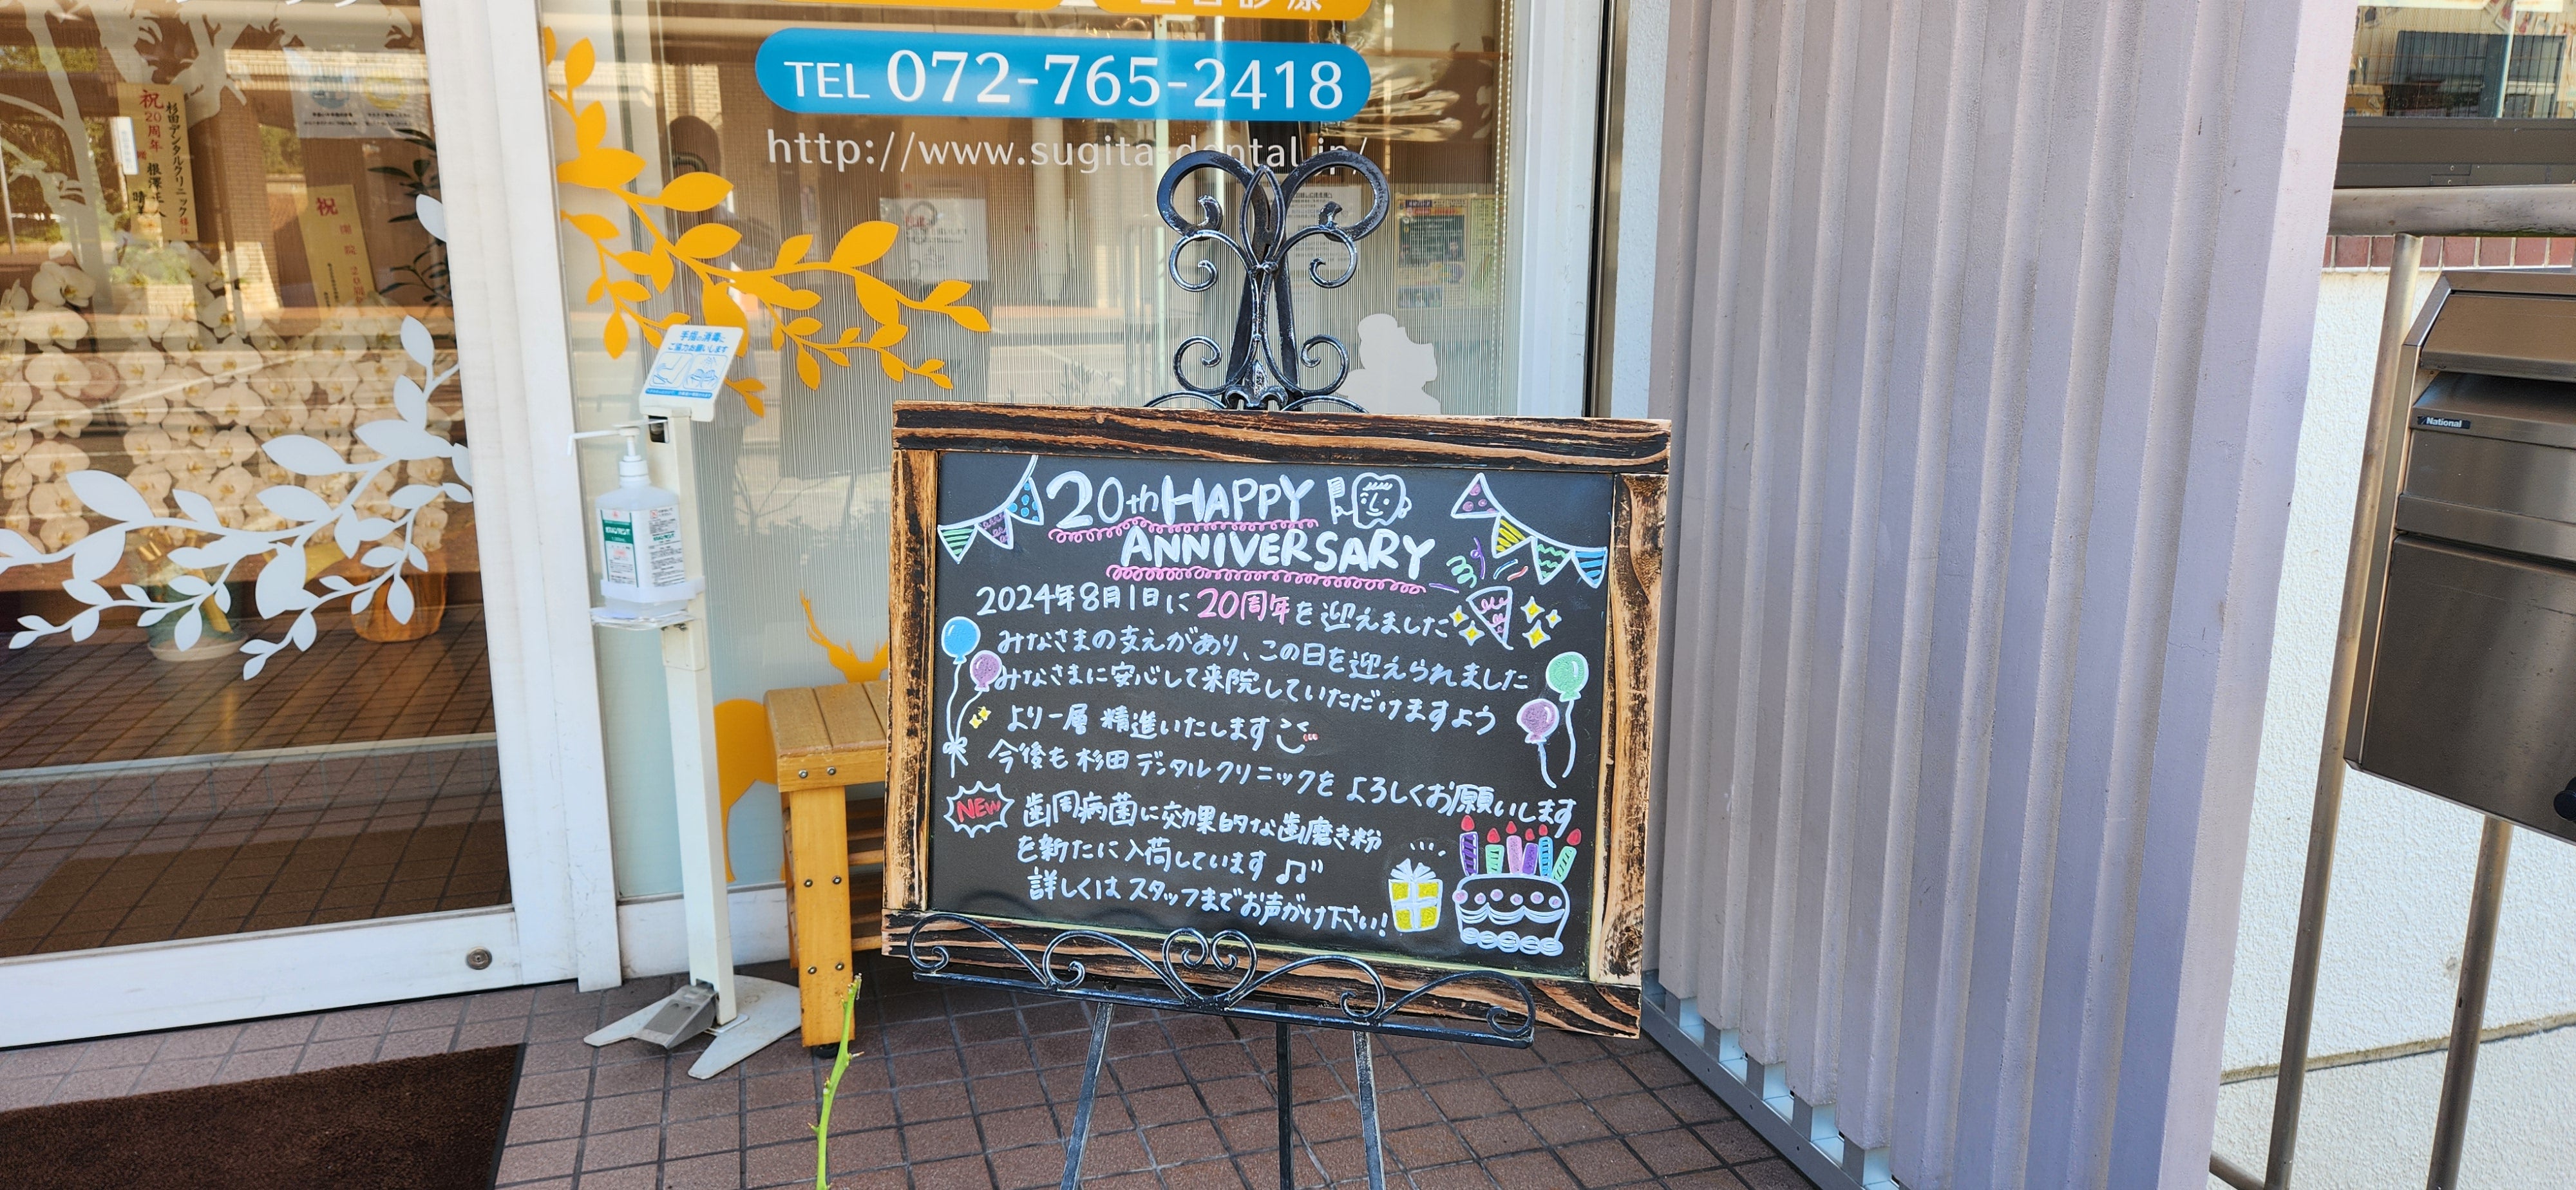 TEL 072-765-2418
http://www.sugita-dental.jp/
祝20周年
杉田デンタルクリニック様江
祝
手指の消毒に
ご協力お願いします
National
20th HAPPY
ANNIVERSARY
2024年8月1日に20周年を迎えました
みなさまの支えがあり、この日を迎えられました
みなさまに安心して来院していただけますよう
より一層 精進いたします
今後も 杉田デンタルクリニックを よろしくお願いします
NEW 歯周病菌に効果的な歯磨き粉
を新たに入荷しています♫
詳しくは スタッフまでお声がけ下さい!